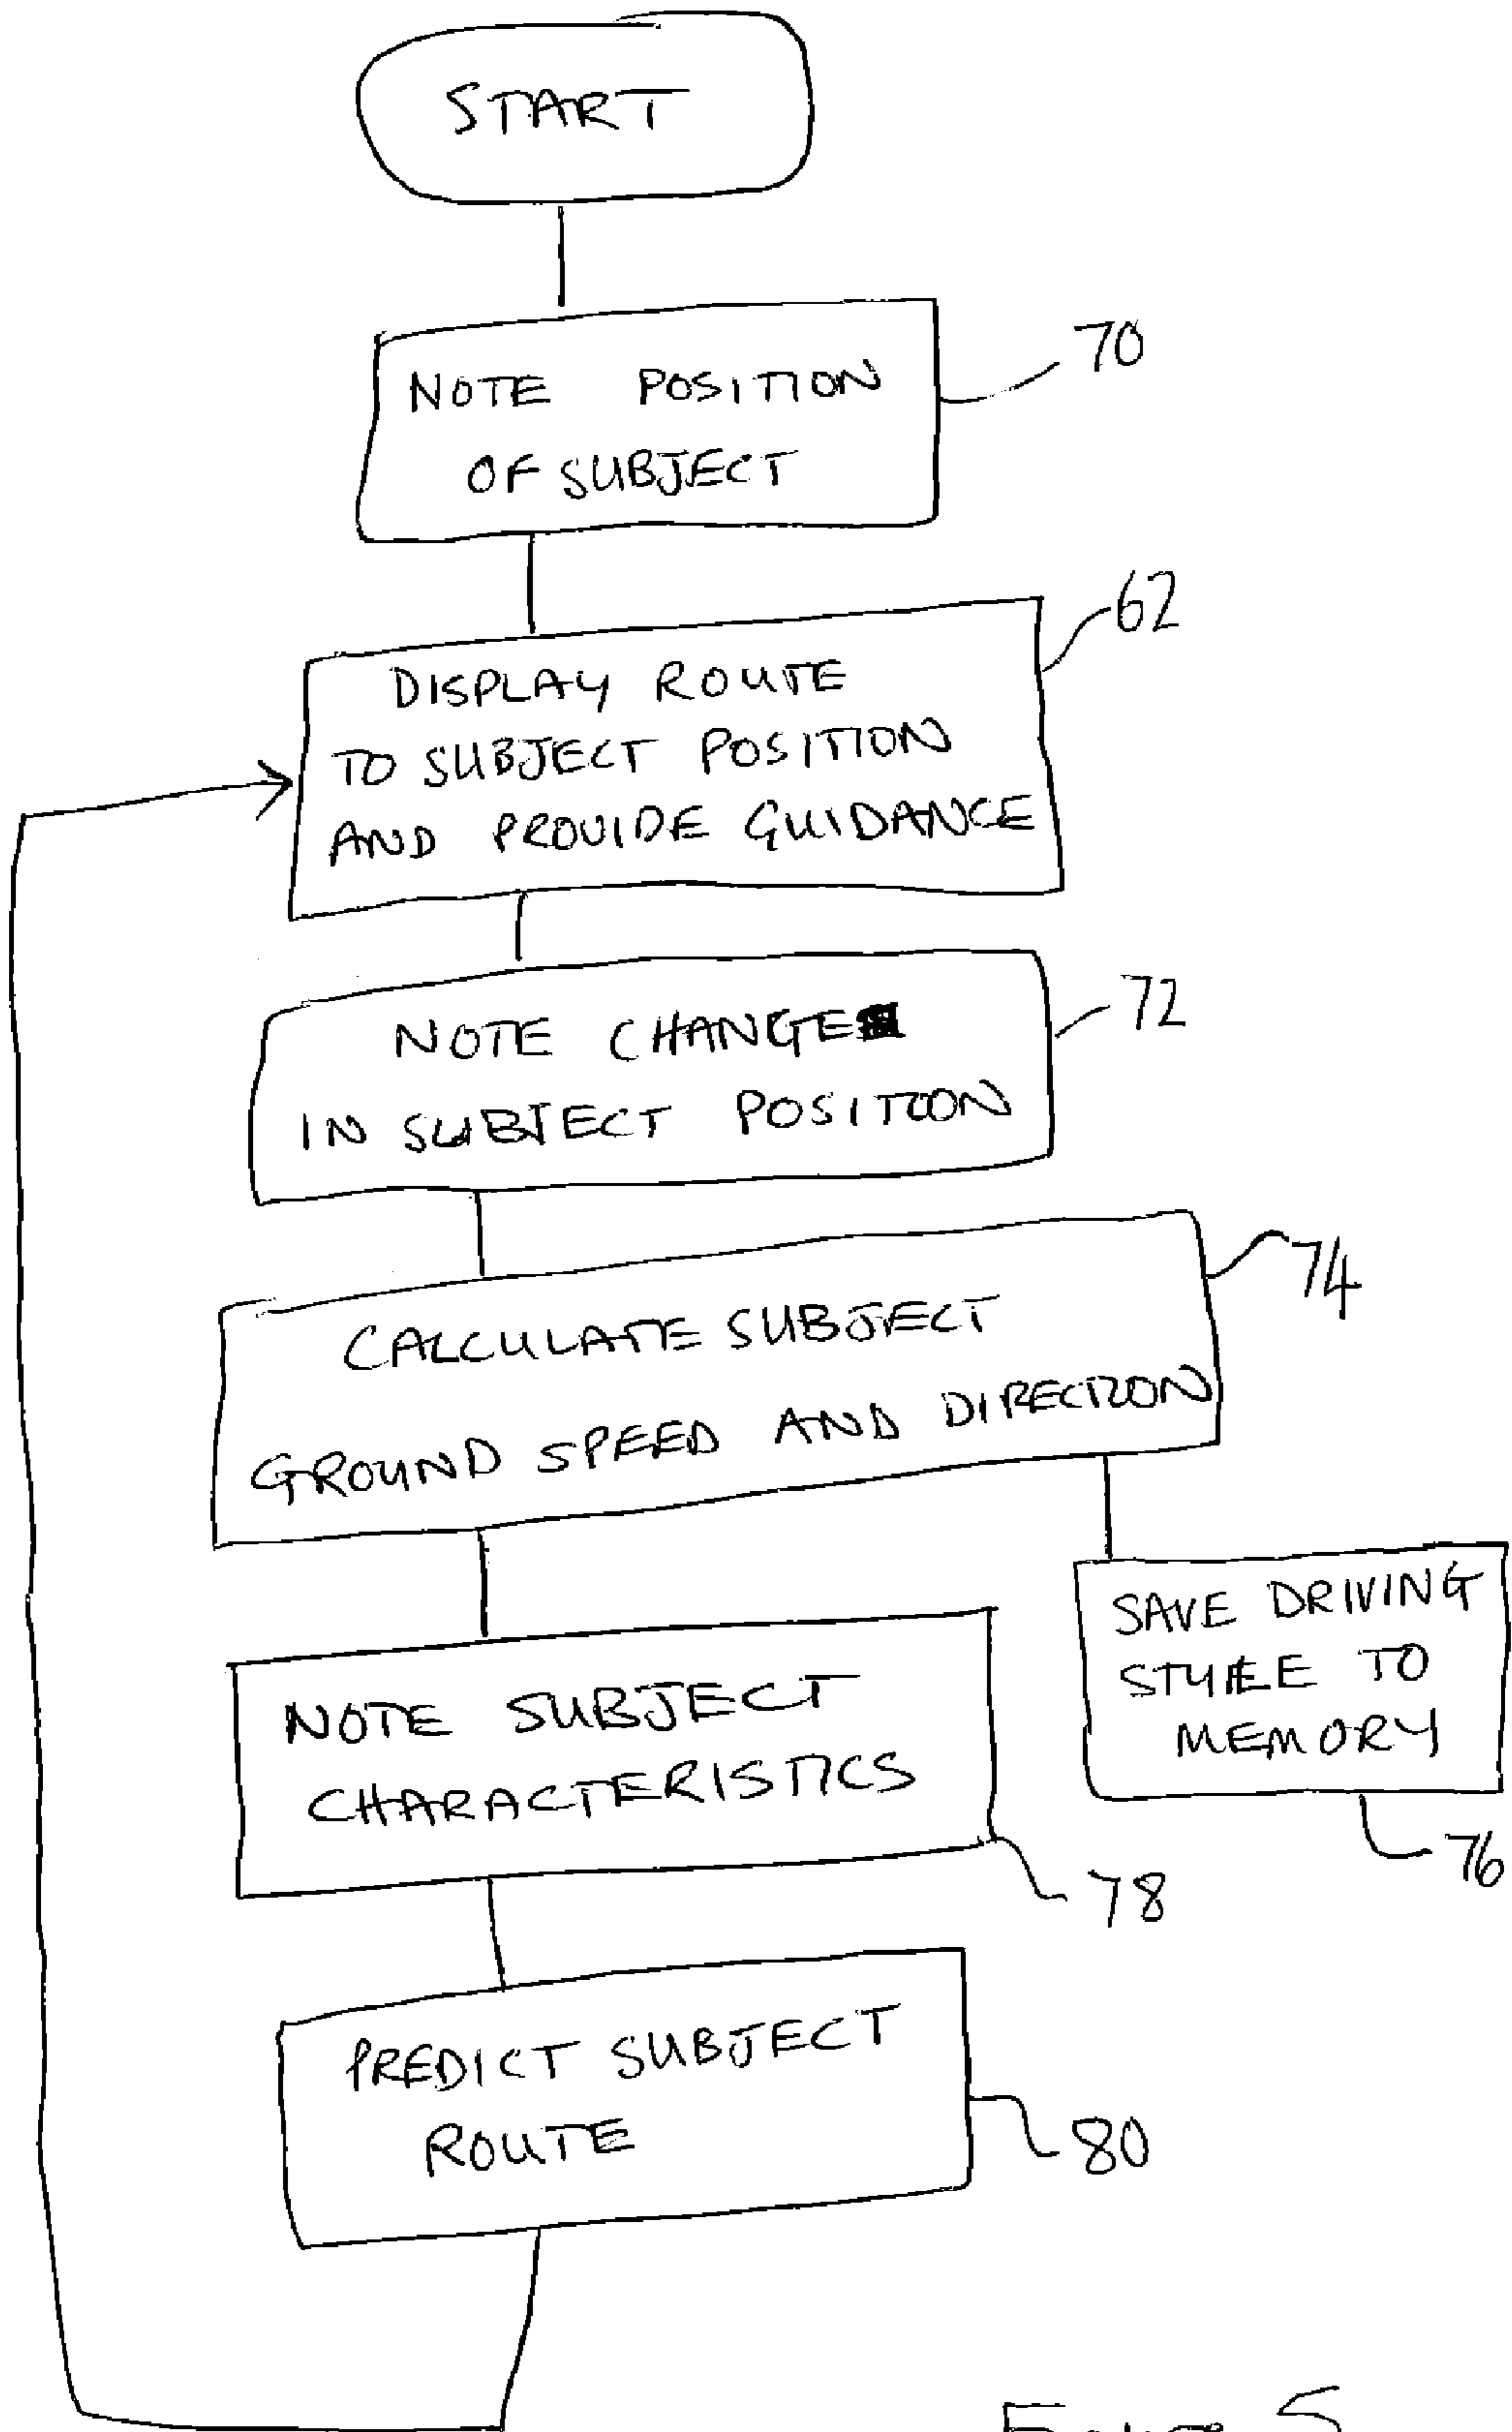 START
NOTE POSITION
OF SUBJECT
70
DISPLAY ROUTE
TO SUBJECT POSITION
AND PROVIDE GUIDANCE
62
NOTE CHANGE
IN SUBJECT POSITION
72
CALCULATE SUBJECT
GROUND SPEED AND DIRECTION
74
SAVE DRIVING
STYLE TO
MEMORY
76
NOTE SUBJECT
CHARACTERISTICS
78
PREDICT SUBJECT
ROUTE
80
FIGURE 5